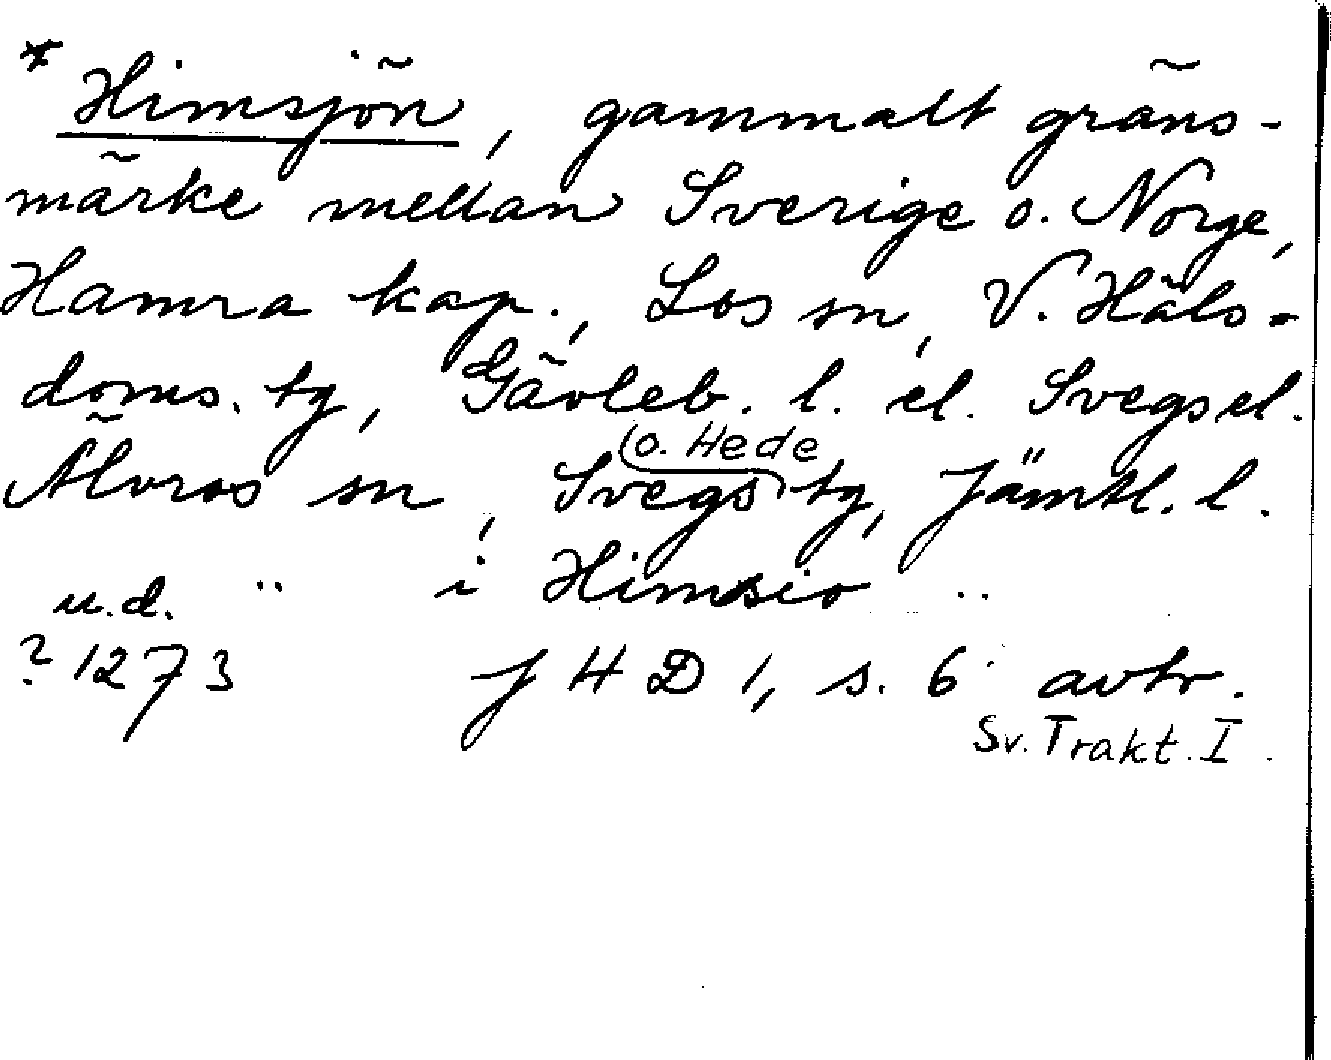 * Himsjön, gammalt gräns-
märke mellan Sverige o. Norge,
Hamra kap., Los sn, V. Häls.
doms. tg, Gävleb. l. el. Svegs el.
Älvros sn, Svegs o. Hede tg, Jämtl. l.
u.d. " i Himsio ..
? 1273 J H D 1, s. 6 avtr.
Sv. Trakt. I.